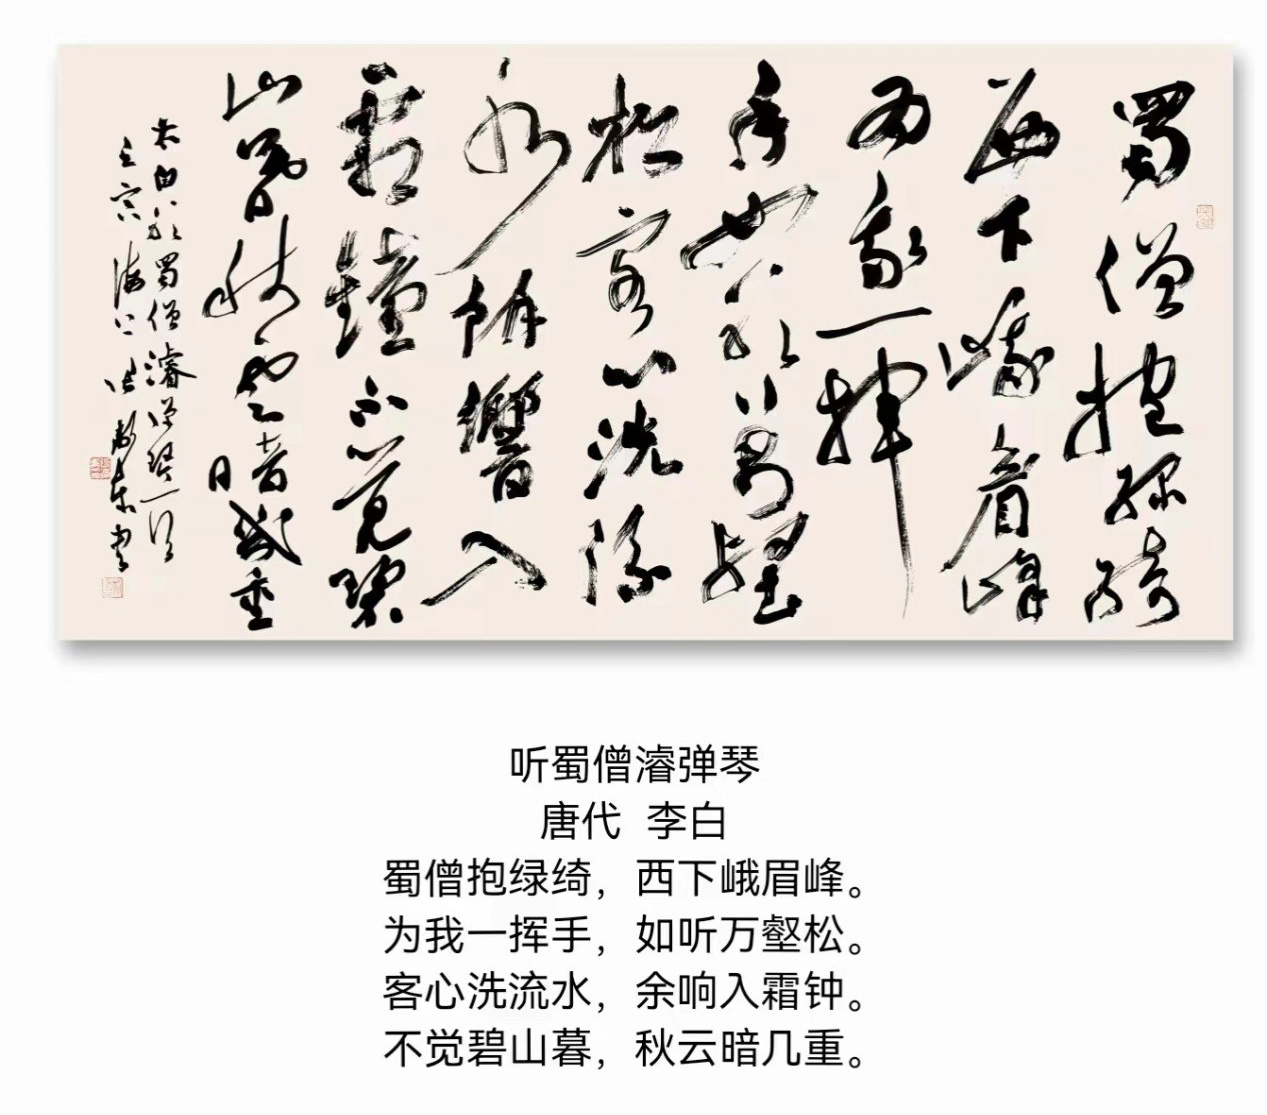 蜀僧抱綠綺
西下峨眉峰
為我一揮
手如聽萬壑
松客心洗流
水餘響入
霜鐘不覺碧
山暮秋雲暗幾重
太白聽蜀僧濬彈琴一首
海上
書
听蜀僧濬弹琴
唐代 李白
蜀僧抱绿绮，西下峨眉峰。
为我一挥手，如听万壑松。
客心洗流水，余响入霜钟。
不觉碧山暮，秋云暗几重。